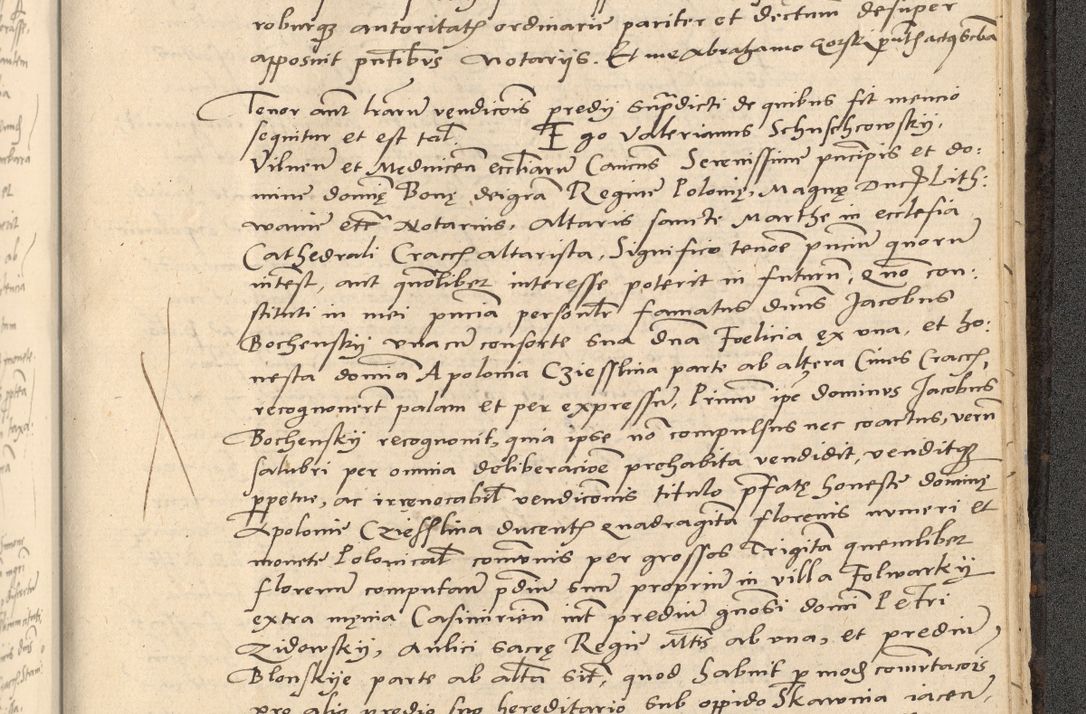 roburq autoritatis ordinarie pariter et decretum desuper
apposuit pntibus Notarijs. Et me Abrahamo
Tenor aut lrarum vendicois predij supradicti de quibus fit mencio
sequitur et est tal. Ego Valerianus Schuschcowskij,
Vilnen et Mednicen eccliarum Canonicus Serenissime principis et do:
mine domine Bone, dei gra Regine Polonie, Magne Duc Lith:
wanie etc Notarius, Altaris sancte Marthe in ecclesia
Cathedrali Cracoi altarista, Significo tenore pncium quorum
interest, aut quomolibet interesse poterit in futurum, Quo con:
stituti in mei pncia personlr famatus dnus Jacobus
Bochenskij vnacum consorte sua dna Foelicia ex vna, et ho:
nesta domina Apolonia Cziesslina parte ab altera Ciues Cracoi,
recognouerunt palam et per expressum, Primum ipe dominus Jacobus
Bochenskij recognouit, quia ipse no compulsus nec coactus, verum
salubri per omnia deliberacioe prehabita vendidit, venditq
ppetue, ac irreuocabil vendicionis titulo pfate honeste domine
Apolonie Cziesslina ducentis quadraginta florenis numeri et
monete Polonical comunis per grossos Triginta quemlibet
florenum computando pdium suum proprium in villa Folwarkij
extra menia Casimirien int predium gnosi domi Petri
Zidowskij, Aulici sacre Regie Mtis ab vna, et predium
Blonskije parte ab alta sit, quod habuit p modum comutacois
pro alio predio suo hereditario sub oppido Skawina iacen,